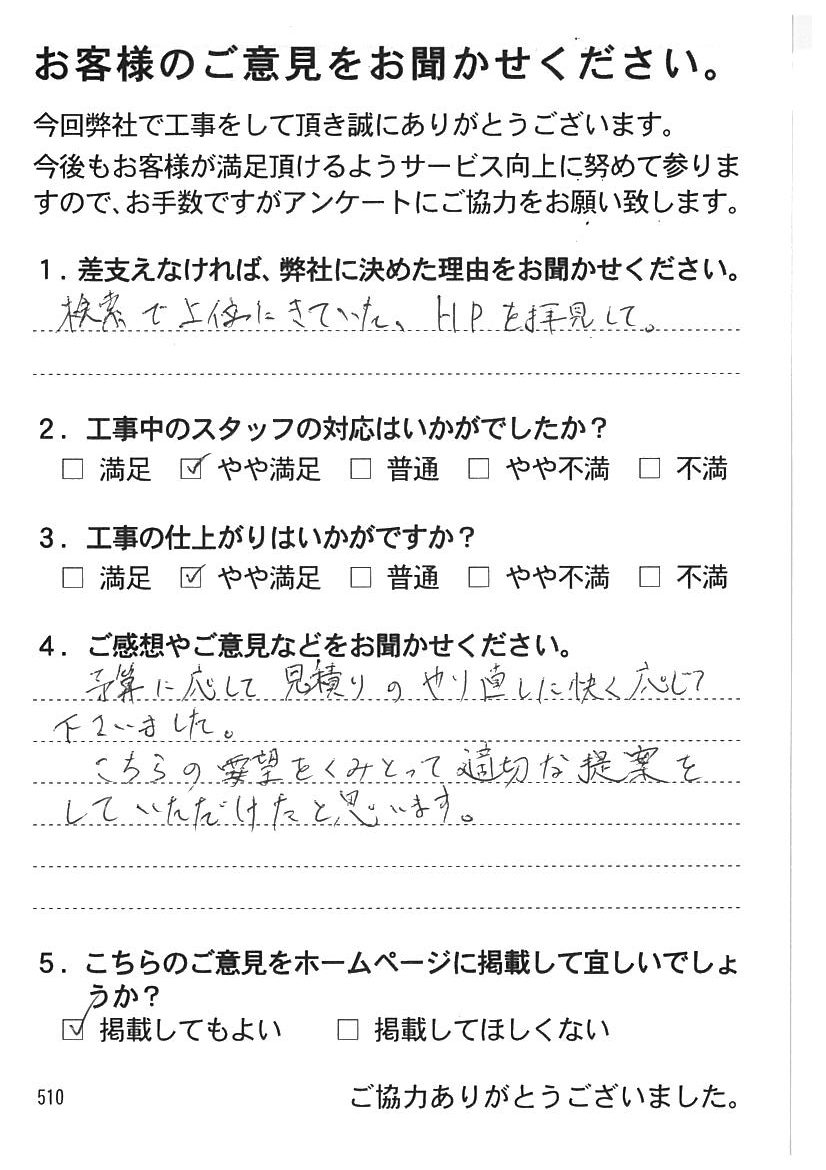 お客様のご意見をお聞かせください。
今回弊社で工事をして頂き誠にありがとうございます。
今後もお客様が満足頂けるようサービス向上に努めて参りま
すので、お手数ですがアンケートにご協力をお願い致します。
1. 差支えなければ、弊社に決めた理由をお聞かせください。
検索で上位にきていた、HPを拝見して。
2. 工事中のスタッフの対応はいかがでしたか?
□ 満足 ☑ やや満足 □ 普通 □ やや不満 □ 不満
3. 工事の仕上がりはいかがですか?
□ 満足 ☑ やや満足 □ 普通 □ やや不満 □ 不満
4. ご感想やご意見などをお聞かせください。
予算に応じて見積りのやり直しに快く応じて
下さいました。
こちらの要望をくみとって適切な提案を
していただけたと思います。
5. こちらのご意見をホームページに掲載して宜しいでしょ
うか?
☑ 掲載してもよい □ 掲載してほしくない
510 ご協力ありがとうございました。